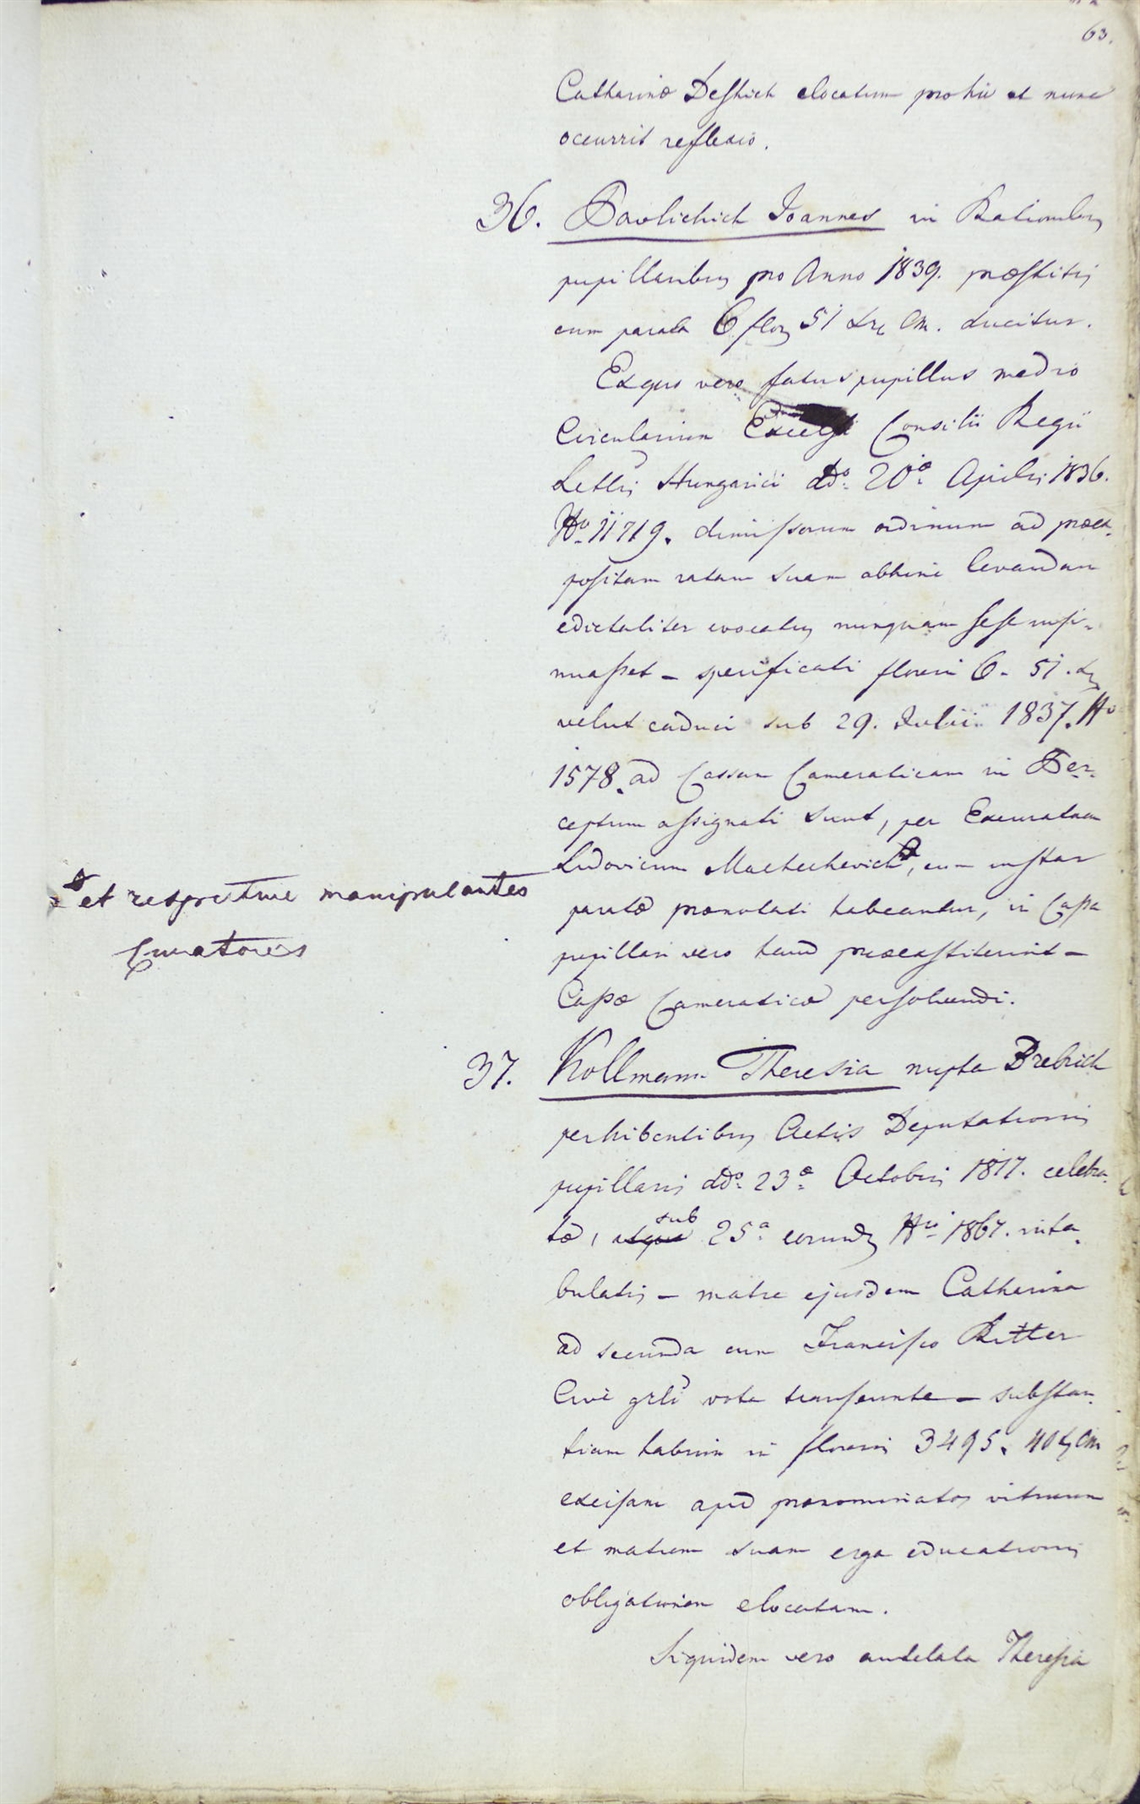 63.
Catharinæ Deshich elocatum pro hic et nunc
occurrit reflexio.
36. Pavlichich Joannes in Rationibus
pupillaribus pro Anno 1839. præstitis
cum parata 6 flor 51 xr Cm. ducitur.
Exquo vero fatus pupillus medio
Circularium Excelsi Consilii Regii
Lttlis Hungarici ddo 20a Aprilis 1836.
No 11719. dimissorum ordinum ad præex-
positam ratam suam abhinc levandam
edictaliter evocatus nunquam sese insi-
nuasset – specificati floreni 6. 51. xr
velut caduci sub 29. Julii 1837. No
1578. ad Cassam Cameraticam in Per-
ceptum assignati sunt, per Exmuratum
Ludovicum Machechevich, cum instar
paratæ prænotati habeantur, in Cassa
pupillari vero haud præexstiterint –
Cassæ Cameraticæ persolvendi.
et respective manipulantes
Curatores
37. Kollmann Theresia nupta Brebrich
perhibentibus Actis Deputationis
pupillaris ddo 23a Octobris 1817. celebra-
tæ, sub 25a eorund Nri 1867. inta-
bulatis – matre ejusdem Catharina
ad secunda cum Francisco Ritter
Cive grli vota transeunte – substan-
tiam habuit in florenis 3495. 40 xr Cm
excisam apud prænominatos vitricum
et matrem suam erga educationis
obligationem elocatam.
Siquidem vero antelata Theresia